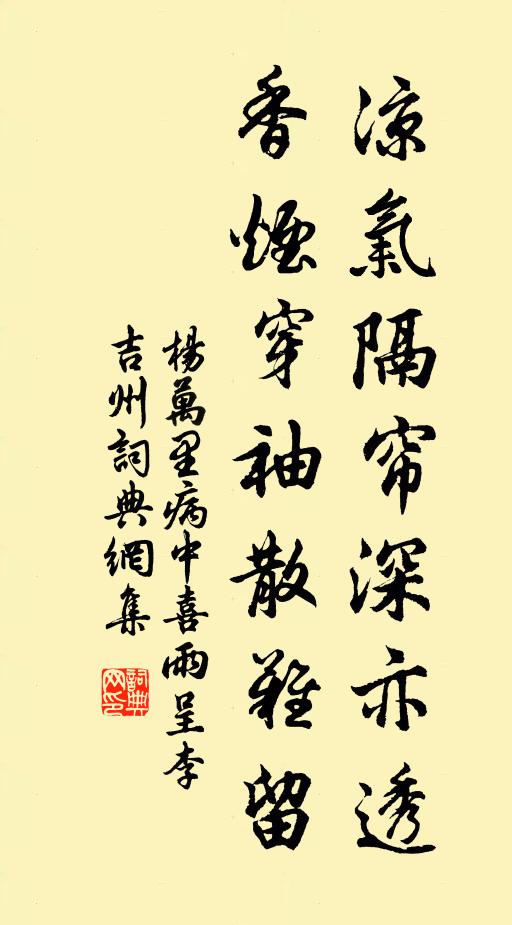 涼氣隔帘深亦透
香煙穿袖散難留
楊萬里病中喜雨呈李
吉州詞典網集
詞典網印